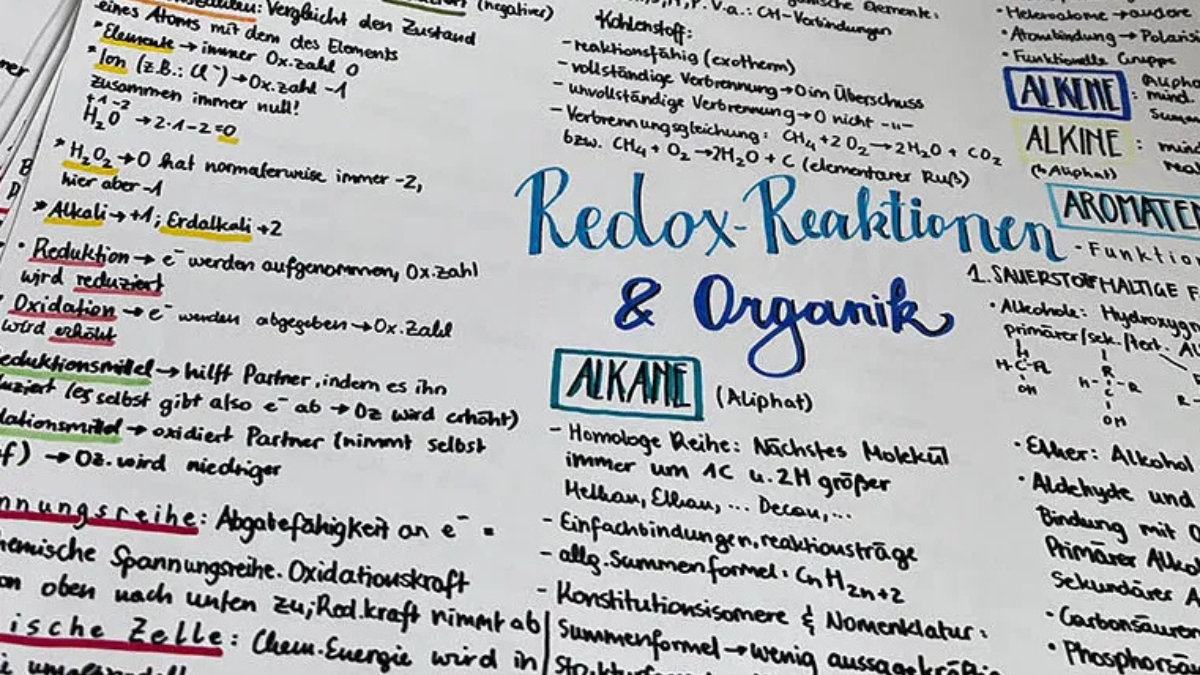 Vergleicht den Zustand
eines Atoms mit dem des Elements
*Elemente → immer Ox.zahl 0
*Ion (z.B.: Cl⁻) → Ox.zahl -1
zusammen immer null!
+1 -2
H₂O → 2·1-2=0
*H₂O₂ → O hat normalerweise immer -2,
hier aber -1
*Alkali → +1; Erdalkali +2
• Reduktion → e⁻ werden aufgenommen, Ox.zahl
wird reduziert
Oxidation → e⁻ werden abgegeben → Ox.Zahl
wird erhöht
eduktionsmittel → hilft Partner, indem es ihn
uziert (es selbst gibt also e⁻ ab → Oz wird erhöht)
dationsmittel → oxidiert Partner (nimmt selbst
f) → Oz. wird niedriger
nnungsreihe: Abgabefähigkeit an e⁻ =
hemische Spannungsreihe. Oxidationskraft
on oben nach unten zu; Red.kraft nimmt ab
ische Zelle: Chem. Energie wird in
(negativer)
V.a.: CH-Verbindungen
Kohlenstoff:
- reaktionsfähig (exotherm)
- vollständige Verbrennung → O im Überschuss
- unvollständige Verbrennung → O nicht -u-
- Verbrennungsgleichung: CH₄ + 2 O₂ → 2H₂O + CO₂
bzw. CH₄ + O₂ → 2H₂O + C (elementarer Ruß)
Redox-Reaktionen
& Organik
ALKANE (Aliphat)
- Homologe Reihe: Nächstes Molekül
immer um 1C u. 2H größer
Methan, Ethan, ... Decan, ...
- Einfachbindungen, reaktionsträge
- allg. Summenformel: CnH2n+2
- Konstitutionsisomere & Nomenklatur:
Summenformel → wenig
Elemente:
• Heteroatome → andere
• Atombindung → Polarisi
• Funktionelle Gruppe
ALKENE (Alipha
: mind.
Summe
ALKINE :
(Aliphat)
AROMATEN
- Funktion
1. SAUERSTOFFHALTIGE F
• Alkohole: Hydroxygr
primärer/sek./tert. Al
H R
H-C-R H-C-R R-
OH C
OH
• Ether: Alkohol
• Aldehyde und
Bindung mit
Primärer Alko
Sekundärer A
• Carbonsäuren
• Phosphorsäu